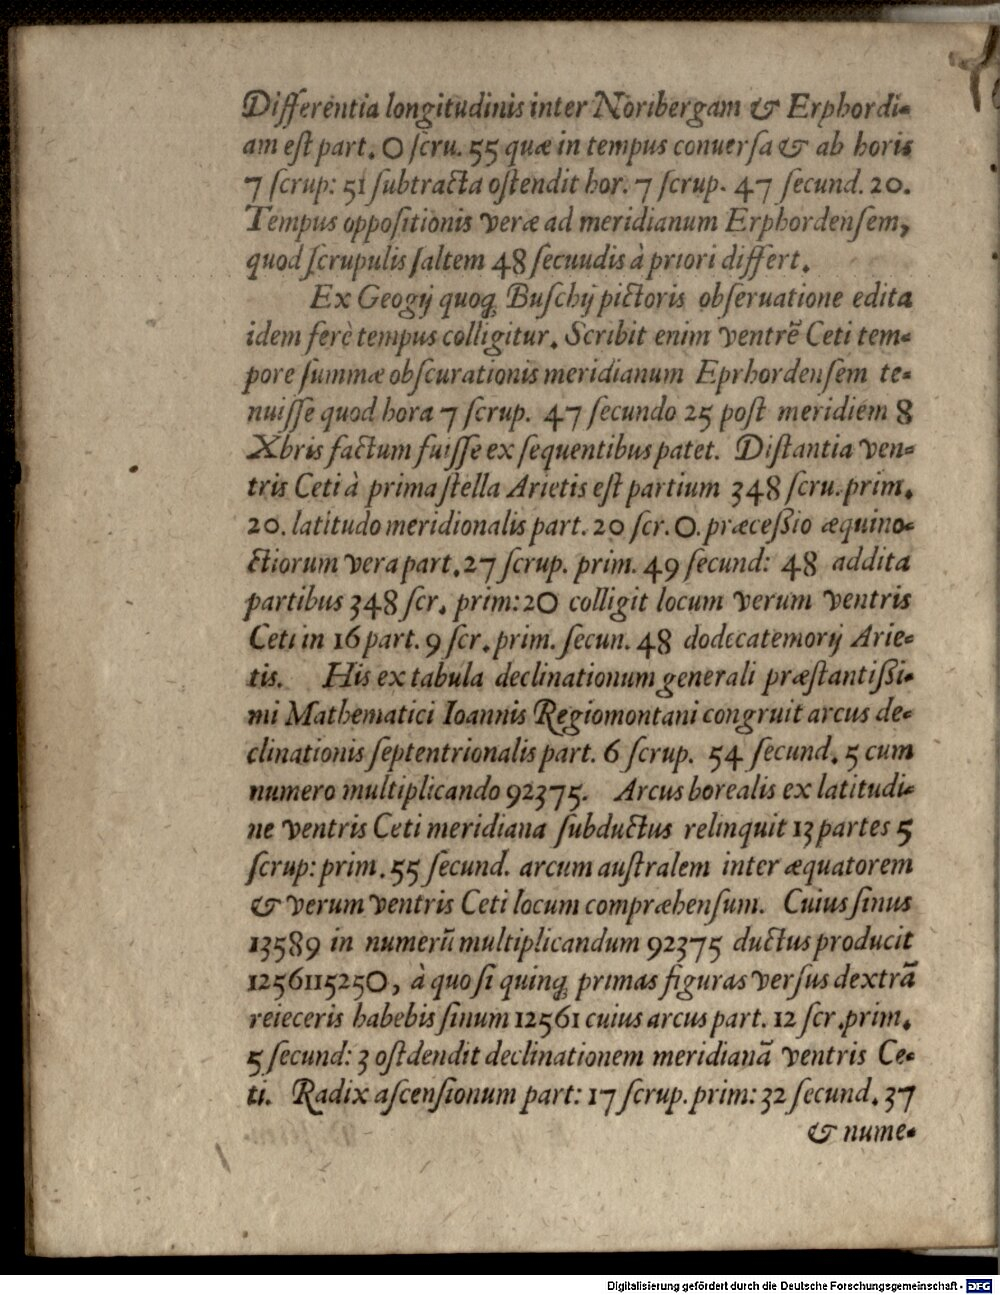 Differentia longitudinis inter Noribergam & Erphordi-
am est part. 0 scru. 55 quæ in tempus conuersa & ab horis
7 scrup: 51 subtracta ostendit hor. 7 scrup. 47 secund. 20.
Tempus oppositionis veræ ad meridianum Erphordensem,
quod scrupulis saltem 48 secuudis à priori differt.
Ex Geogij quoq; Buschij pictoris obseruatione edita
idem ferè tempus colligitur. Scribit enim ventrẽ Ceti tem-
pore summæ obscurationis meridianum Eprhordensem te-
nuisse quod hora 7 scrup. 47 secundo 25 post meridiem 8
Xbris factum fuisse ex sequentibus patet. Distantia ven-
tris Ceti à prima stella Arietis est partium 348 scru. prim.
20. latitudo meridionalis part. 20 scr. 0. præcessio æquino-
ctiorum vera part. 27 scrup. prim. 49 secund: 48 addita
partibus 348 scr. prim: 20 colligit locum verum ventris
Ceti in 16 part. 9 scr. prim. secun. 48 dodecatemorij Arie-
tis. His ex tabula declinationum generali præstantissi-
mi Mathematici Ioannis Regiomontani congruit arcus de-
clinationis septentrionalis part. 6 scrup. 54 secund. 5 cum
numero multiplicando 92375. Arcus borealis ex latitudi-
ne ventris Ceti meridiana subductus relinquit 13 partes 5
scrup: prim. 55 secund. arcum australem inter æquatorem
& verum ventris Ceti locum compræhensum. Cuius sinus
13589 in numerũ multiplicandum 92375 ductus producit
1256115250, à quo si quinq; primas figuras versus dextrã
reieceris habebis sinum 12561 cuius arcus part. 12 scr. prim.
5 secund: 3 ostdendit declinationem meridianã ventris Ce-
ti. Radix ascensionum part: 17 scrup. prim: 32 secund. 37
& nume-
Digitalisierung gefördert durch die Deutsche Forschungsgemeinschaft - DFG